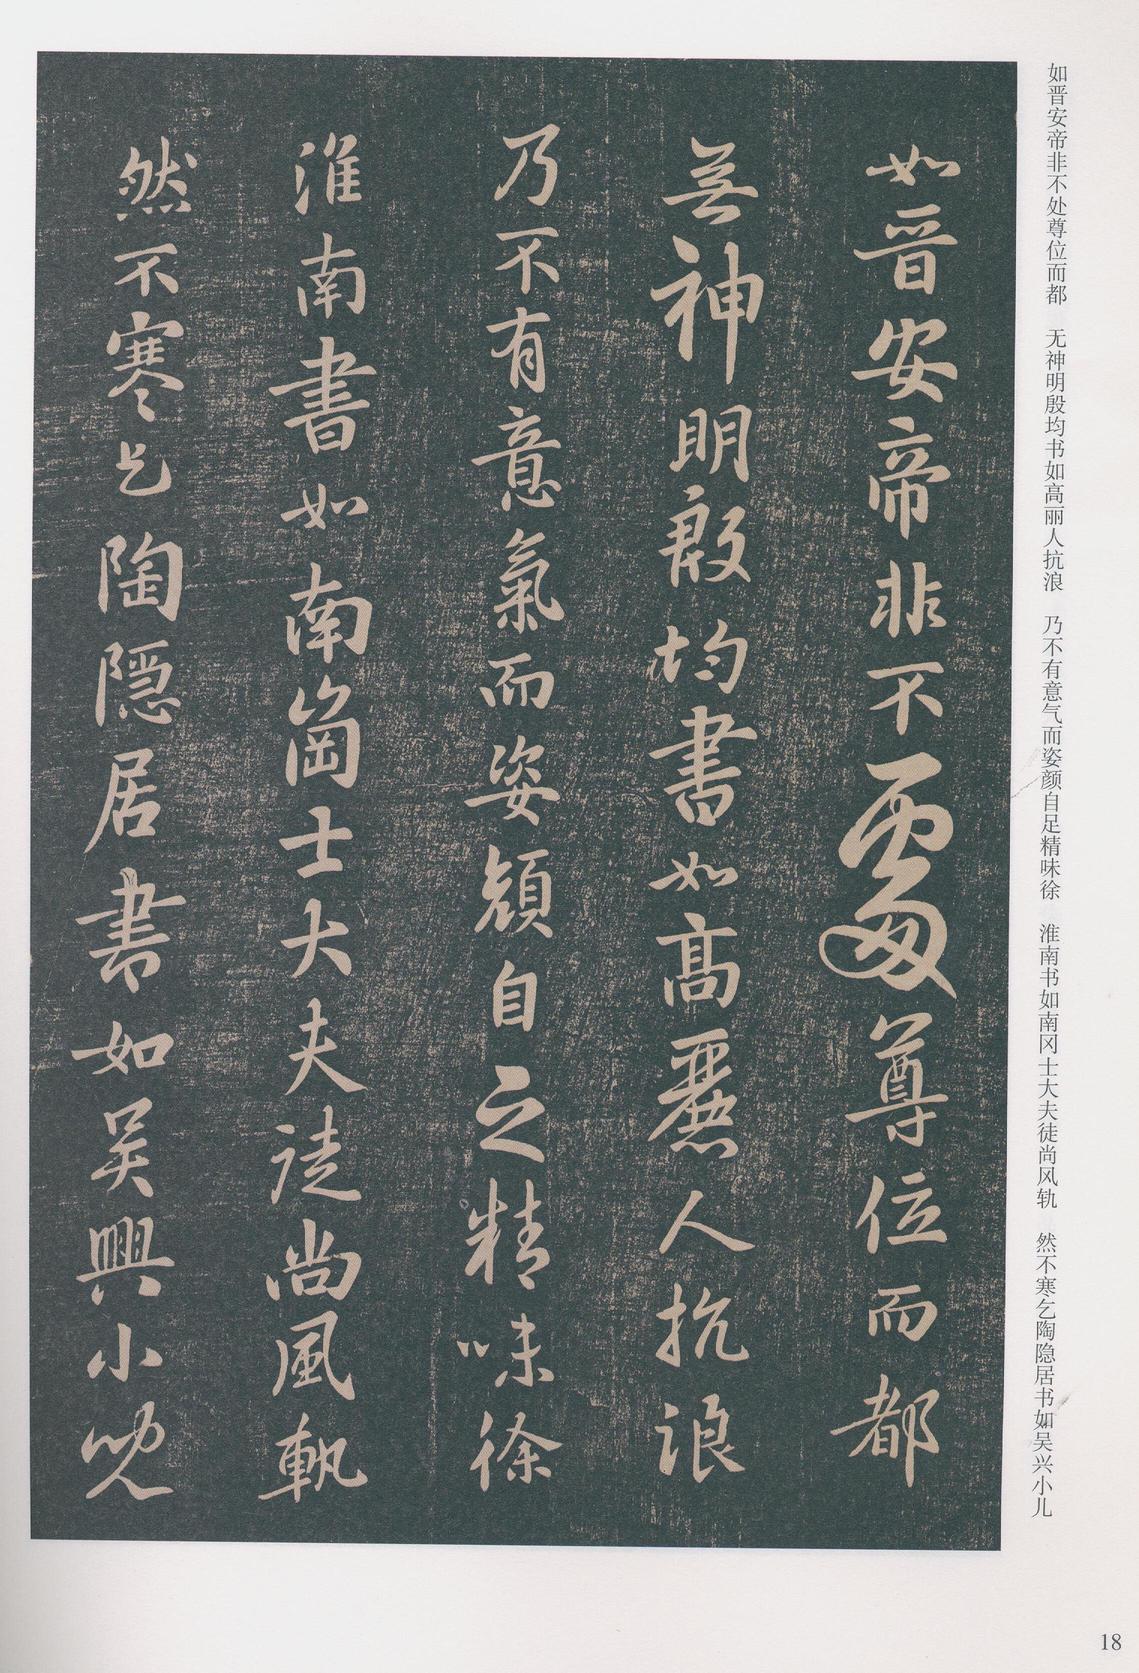 如晋安帝非不处尊位而都　无神明殷均书如高丽人抗浪　乃不有意气而姿颜自足精味徐　淮南书如南冈士大夫徒尚风轨　然不寒乞陶隐居书如吴兴小儿
如晉安帝非不處尊位而都
無神明殷均書如高麗人抗浪
乃不有意氣而姿顔自足精味徐
淮南書如南崗士大夫徒尚風軌
然不寒乞陶隱居書如吳興小兒
18